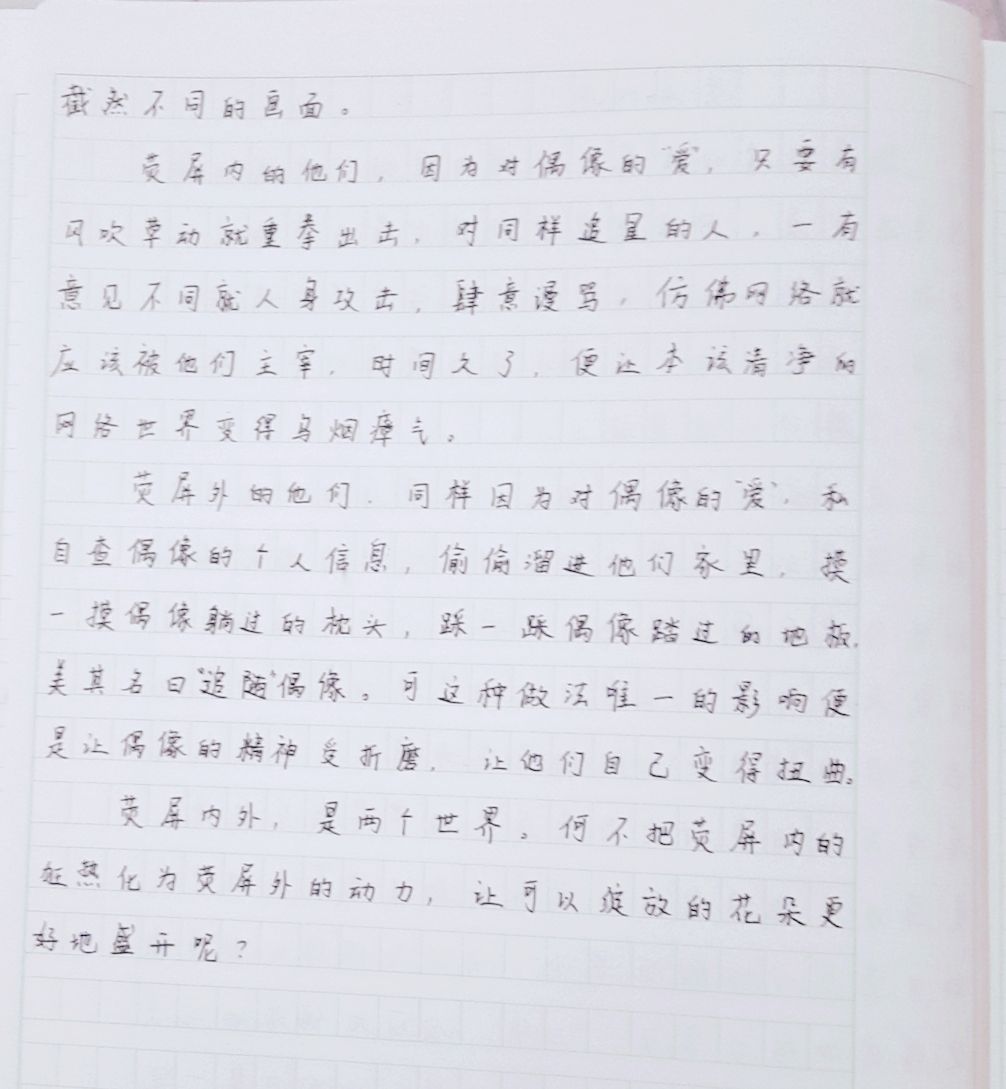 截然不同的画面。
荧屏内的他们，因为对偶像的“爱”，只要有
风吹草动就重拳出击，对同样追星的人，一有
意见不同就人身攻击，肆意漫骂，仿佛网络就
应该被他们主宰，时间久了，便让本该清净的
网络世界变得乌烟瘴气。
荧屏外的他们，同样因为对偶像的“爱”，私
自查偶像的个人信息，偷偷溜进他们家里，摸
一摸偶像躺过的枕头，踩一踩偶像踏过的地板，
美其名曰“追随”偶像。可这种做法唯一的影响便
是让偶像的精神受折磨，让他们自己变得扭曲。
荧屏内外，是两个世界。何不把荧屏内的
狂热化为荧屏外的动力，让可以绽放的花朵更
好地盛开呢？